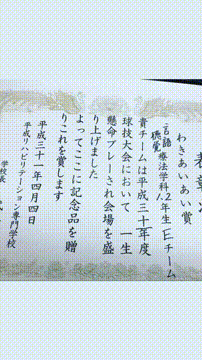 表彰
わきあいあい賞
言語聴覚療法学科1.2年生 Eチーム
貴チームは平成三十一年度
球技大会において 一生
懸命プレーされ会場を盛
り上げました
よってここに記念品を贈
りこれを賞します
平成三十一年四月四日
平成リハビリテーション専門学校
学校長